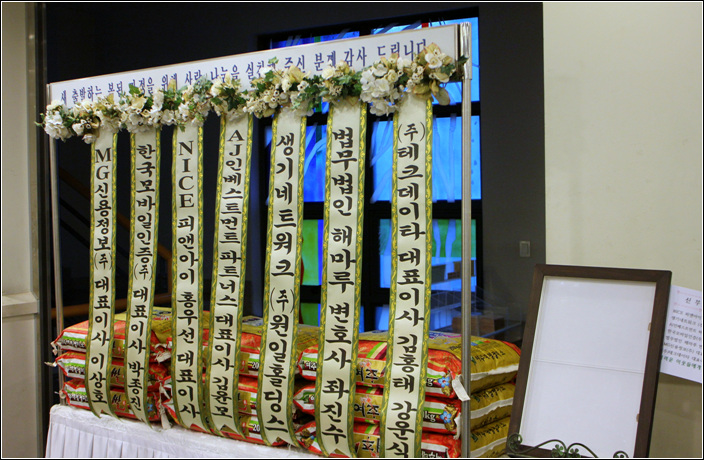 새 출발하는 복된 가정을 위해 사랑 나눔을 실천해 주시 분께 감사 드립니다
MG신용정보(주) 대표이사 이상호
한국모바일인증(주) 대표이사 박종진
NICE 피앤아이 홍우선 대표이사
AJ인베스트먼트 파트너스 대표이사 김윤모
생기네트워크 (주)원일홀딩스
법무법인 해마루 변호사 좌진수
(주)테크데이타 대표이사 김홍태 강윤식
여주
여주